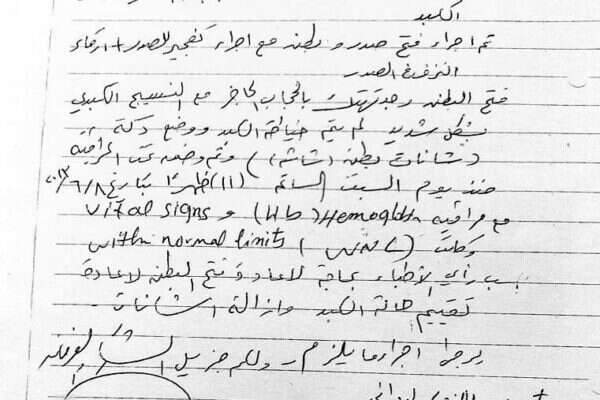 الكبد
تم اجراء فتح صدر و بطن مع اجراء تفجير للصدر + ارقاء
النزف الصدر
فتح البطن وجد تهتك بالحجاب الحاجز مع النسيج الكبدي
بشكل شديد لم يتم خياطة الكبد ووضع دكة
(شانات بطن (شاش)) وتم وضعه تحت المراقبة
منذ يوم السبت الساعة (11) ظهرًا بتاريخ ٨/٦/
مع مراقبة Hemoglobin (Hb) و vital signs
وكانت (WNL) with normal limits
بسبب رأي الأطباء بحاجة لاعادة فتح البطن لاعادة
تقييم حالة الكبد وازالة الشانات.
يرجى اجراء ما يلزم - ولكم جزيل الشكر